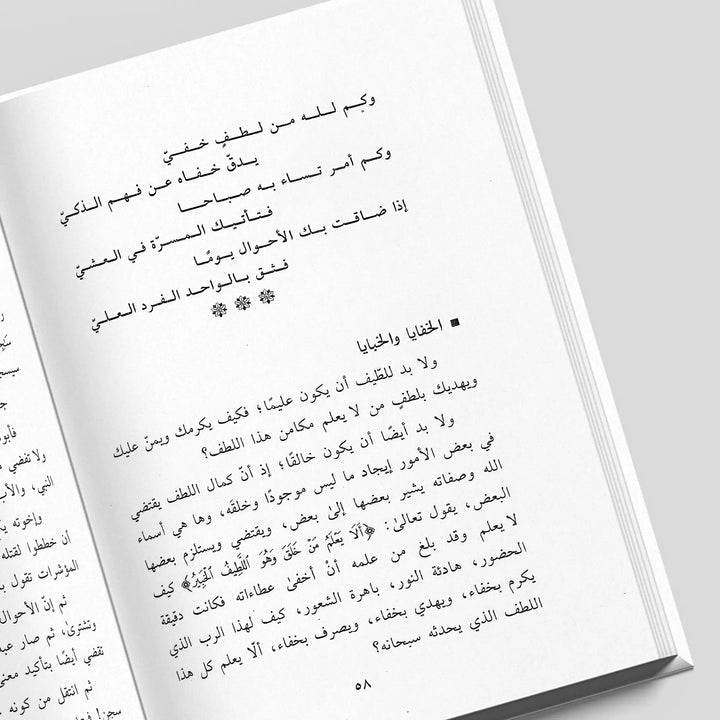 وكم لله من لطفٍ خفيّ
يدقّ خفاه عن فهم الذكيّ
وكم أمر تساء به صباحا
فتأتيك المسرّة في العشيّ
إذا ضاقت بك الأحوال يومًا
فثق بالواحد الفرد العليّ
■ الخفايا والخبايا
ولا بد للطّيف أن يكون عليمًا؛ فكيف يكرمك ويمنّ عليك
ويهديك بلطفٍ من لا يعلم مكامن هذا اللطف؟
ولا بد أيضًا أن يكون خالقًا؛ إذ أنّ كمال اللطف يقتضي
في بعض الأمور إيجاد ما ليس موجودًا وخلقَه، وها هي أسماء
الله وصفاته يشير بعضها إلىٰ بعض، ويقتضي ويستلزم بعضها
البعض، يقول تعالىٰ: ﴿أَلَا يَعْلَمُ مَنْ خَلَقَ وَهُوَ اللَّطِيفُ الْخَبِيرُ﴾ كيف
لا يعلم وقد بلغ من علمه أنْ أخفىٰ عطاءاته فكانت دقيقة
الحضور، هادئة النور، باهرة الشعور، كيف لهذا الرب الذي
يكرم بخفاء، ويهدي بخفاء، ويصرف بخفاء، ألّا يعلم كل هذا
اللطف الذي يحدثه سبحانه؟
٥٨
فأبو
ولا تفضي
النبي، والأب
وإخوته
أن خططوا لقتله
المؤشرات تقول
ثم إنّ الأحوال
وتشترىٰ، ثم صار عبد
تقضي أيضًا بتأكيد معنى
ثم انتقل من كونه